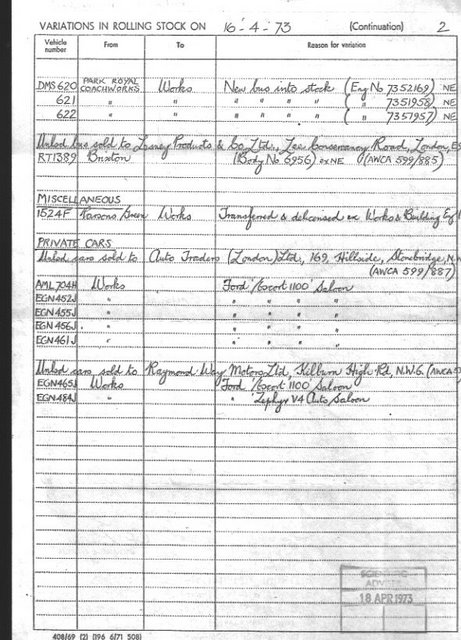 VARIATIONS IN ROLLING STOCK ON 16-4-73 (Continuation) 2
Vehicle number From To Reason for variation
DMS 620 PARK ROYAL COACHWORKS Works New bus into stock (Eng No 7352169) NE
621 " " " " " " ( " 7351958) NE
622 " " " " " " ( " 7351957) NE
Unlsd bus sold to Lesney Products & Co Ltd., Lee Conservancy Road, London, E9
RT1389 Brixton (Body No 6956) ex NE (AWCA 599/885)
MISCELLANEOUS
1524F Parsons Green Works Transferred & delicensed ex Works & Building
PRIVATE CARS
Unlsd cars sold to Auto Traders (London) Ltd., 169, Hillside, Stonebridge, N.W.
(AWCA 599/887)
AML 704H Works Ford 'Escort 1100' Saloon
EGN 452J " " " " "
EGN 455J " " " " "
EGN 456J " " " " "
EGN 461J " " " " "
Unlsd cars sold to Raymond Way Motors Ltd, Kilburn High Rd, N.W.6. (AWCA
EGN 465J Works Ford 'Escort 1100' Saloon
EGN 484J " " 'Zephyr V4 Auto Saloon
SCIENTIFIC
18 APR 1973
408/69 (2) (196 6/71 508)